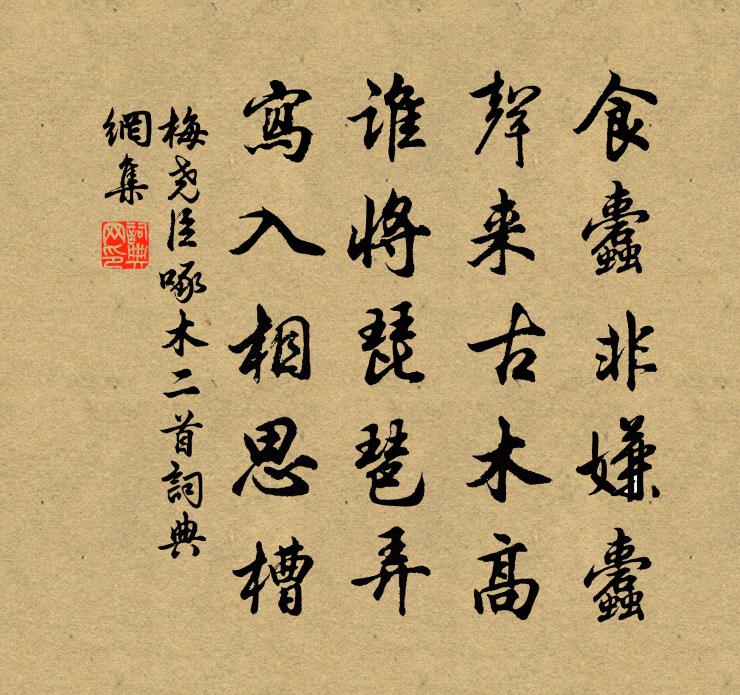 食蠹非嫌蠹
聲来古木高
誰將琵琶弄
寫入相思槽
梅堯臣啄木二首詞典
網集
詞典
网印